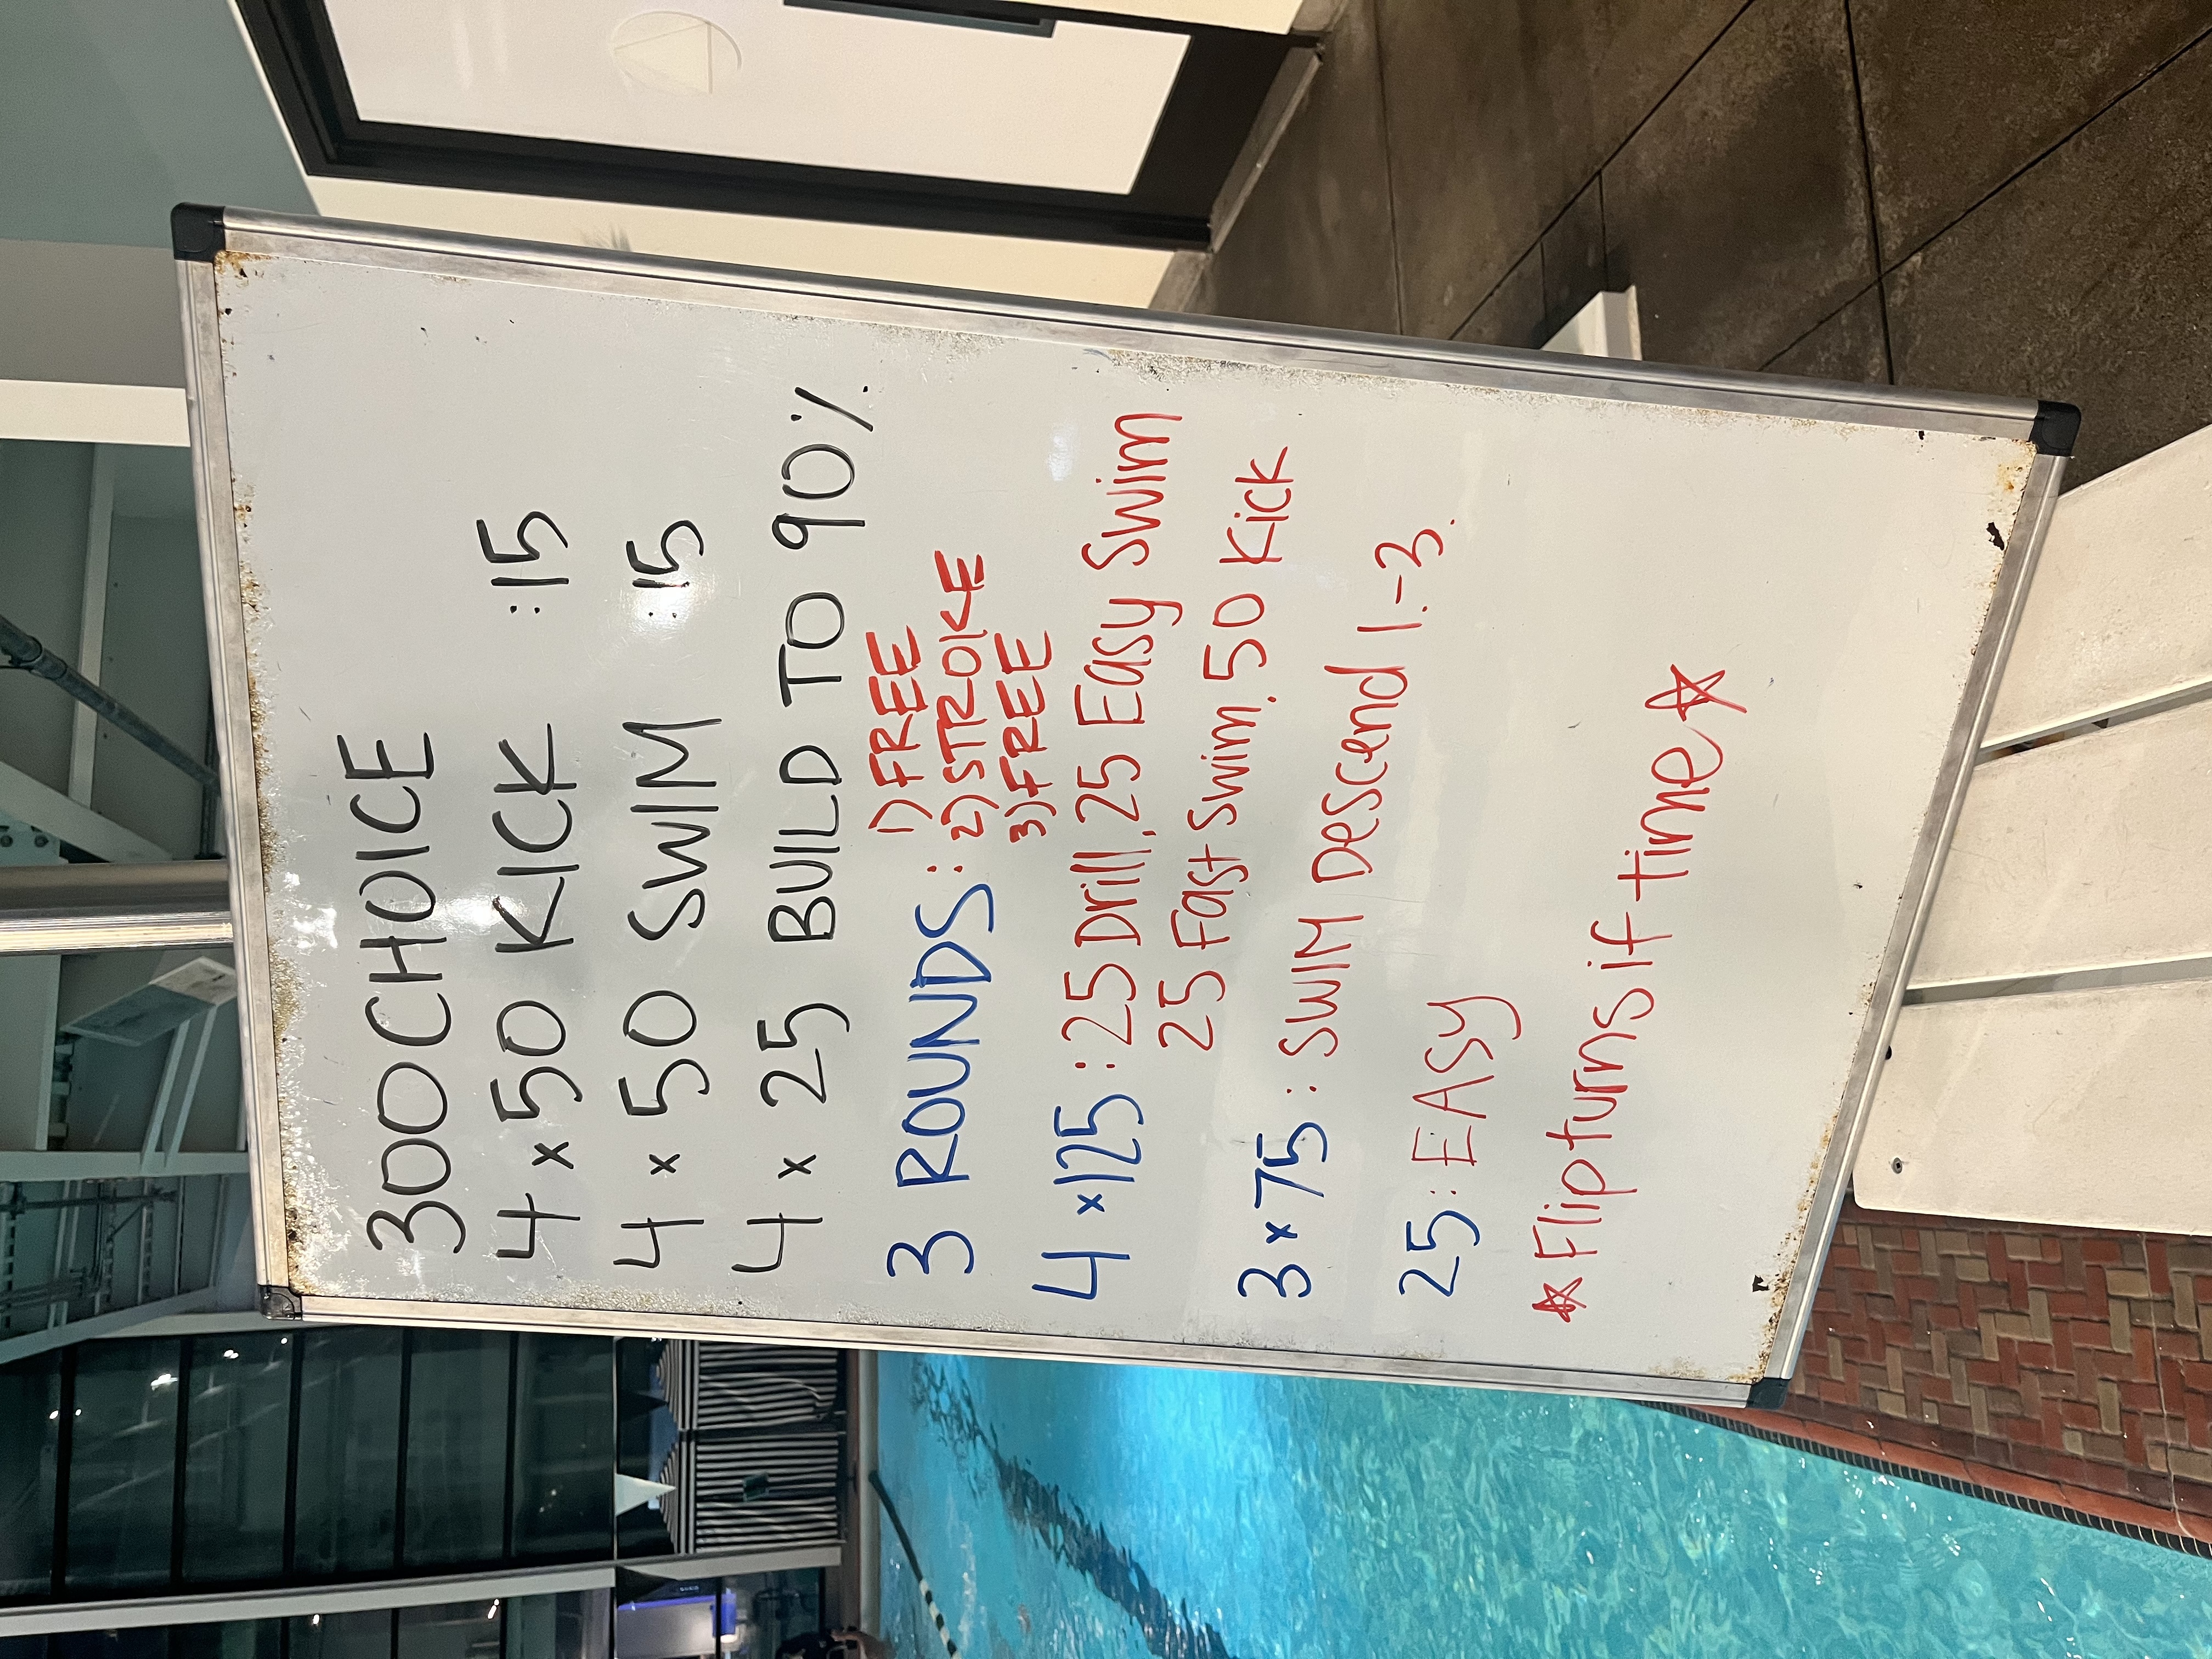 300 CHOICE
4 x 50 KICK :15
4 x 50 SWIM :15
4 x 25 BUILD TO 90%
3 ROUNDS : 1) FREE
2) STROKE
3) FREE
4 x 125 : 25 Drill, 25 Easy Swim
25 Fast Swim, 50 Kick
3 x 75 : SWIM Descend 1.-3.
25 : EASY
☆ Flip turns if time ☆